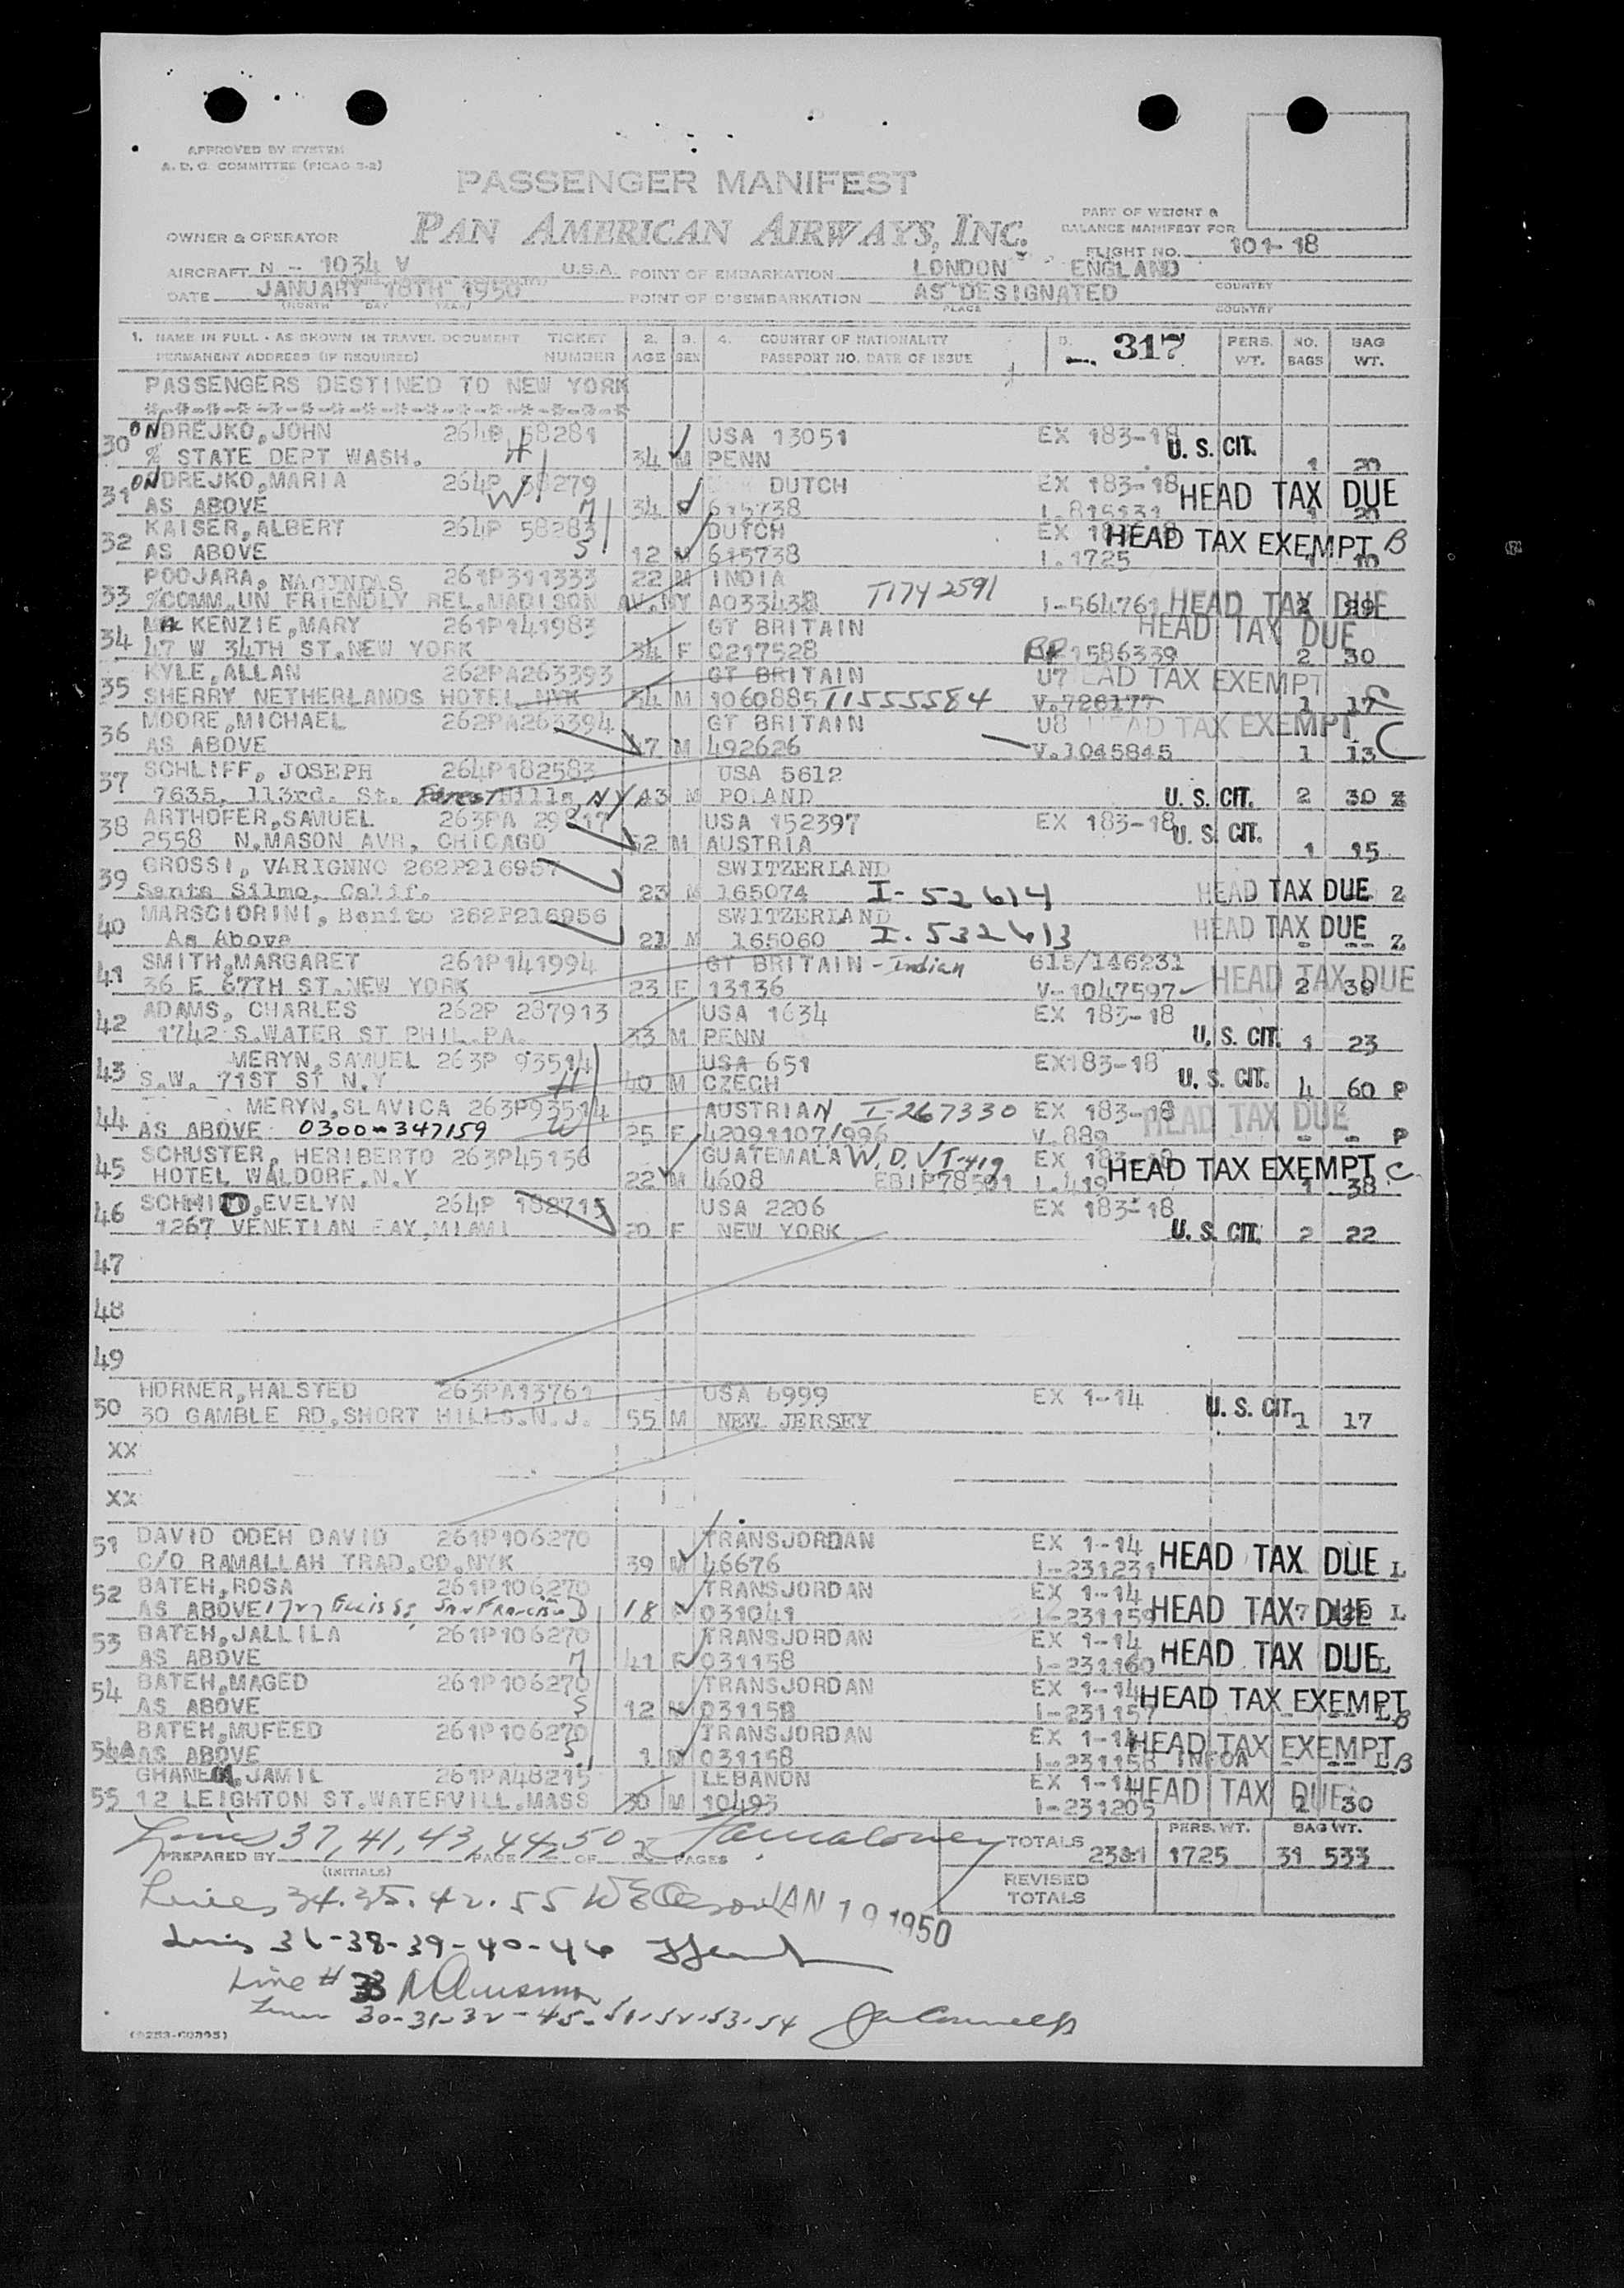 APPROVED BY SYSTEM
A. D. C. COMMITTEE (PICAO 3-2)
PASSENGER MANIFEST
PAN AMERICAN AIRWAYS, INC.
PART OF WEIGHT &
BALANCE MANIFEST FOR
OWNER & OPERATOR
FLIGHT NO. 101-18
AIRCRAFT N - 1034 V U.S.A. POINT OF EMBARKATION LONDON ENGLAND
COUNTRY
DATE JANUARY 18TH 1950 POINT OF DISEMBARKATION AS DESIGNATED
(MONTH DAY YEAR) PLACE COUNTRY
1. NAME IN FULL - AS SHOWN IN TRAVEL DOCUMENT TICKET 2. 3. 4. COUNTRY OF NATIONALITY 317 PERS. NO. BAG
PERMANENT ADDRESS (IF REQUIRED) NUMBER AGE SEX PASSPORT NO. DATE OF ISSUE WT. BAGS WT.
PASSENGERS DESTINED TO NEW YORK
*-*-*-*-*-*-*-*-*-*-*-*-*-*-*-*-*
30 ONDREJKO,JOHN 264P 58281 USA 13051 EX 183-18 U. S. CIT.
% STATE DEPT WASH. H 34 M PENN 1 20
31 ONDREJKO,MARIA 264P 58279 DUTCH EX 183-18 HEAD TAX DUE
AS ABOVE W 34 615738 I.815131 1 20
32 KAISER,ALBERT 264P 58283 DUTCH EX HEAD TAX EXEMPT B
AS ABOVE S 12 M 615738 I.1725 1 10
33 POOJARA, NAGINDAS 261P311333 22 M INDIA
%COMM.UN FRIENDLY REL.MADISON AV.NY A033438 T1742591 I-564761 HEAD TAX DUE 2 29
34 KENZIE,MARY 261P141983 GT BRITAIN HEAD TAX DUE
47 W 34TH ST.NEW YORK 34 F C217528 1586339 2 30
35 KYLE,ALLAN 262PA263393 GT BRITAIN U7 HEAD TAX EXEMPT
SHERRY NETHERLANDS HOTEL NYK 54 M 1060885 T1555584 V.726177 1 17 C
36 MOORE,MICHAEL 262PA263394 GT BRITAIN U8 HEAD TAX EXEMPT C
AS ABOVE 47 M 492626 V.1045845 1 13
37 SCHLIFF, JOSEPH 264P182583 USA 5612
7635, 113rd. St. Forest Hills, NY 43 M POLAND U. S. CIT. 2 30 Z
38 ARTHOFER,SAMUEL 263PA 29817 USA 152397 EX 183-18 U. S. CIT.
2558 N.MASON AVE, CHICAGO 52 M AUSTRIA 1 15
39 GROSSI, VARIGNNO 262P216957 SWITZERLAND
Santa Silmo, Calif. 23 M 165074 I-52614 HEAD TAX DUE Z
40 MARSCIORINI, Benito 262P216956 SWITZERLAND HEAD TAX DUE
As Above 21 M 165060 I.532613 - -- Z
41 SMITH,MARGARET 261P141994 GT BRITAIN - Indian 615/146231 HEAD TAX DUE
36 E 67TH ST.NEW YORK 23 F 13136 V-1047597 2 39
42 ADAMS, CHARLES 262P 287913 USA 1634 EX 183-18
1742 S.WATER ST PHIL.PA. 33 M PENN U. S. CIT. 1 23
43 MERYN,SAMUEL 263P 93514 USA 651 EX183-18
S.W. 71ST ST N.Y. H 40 M CZECH U. S. CIT. 4 60 P
44 MERYN,SLAVICA 263P93514 AUSTRIAN I-267330 EX 183-18 HEAD TAX DUE
AS ABOVE 0300-347159 W 25 F 42091107/996 V.889 - - P
45 SCHUSTER, HERIBERTO 263P45156 GUATEMALA W.D. T-419 EX 183-18 HEAD TAX EXEMPT C
HOTEL WALDORF.N.Y 22 M 4608 I.419 1 38
46 SCHMID,EVELYN 264P 182715 USA 2206 EX 183-18
1267 VENETIAN EAY,MIAMI 20 F NEW YORK U. S. CIT. 2 22
47
48
49
50 HORNER,HALSTED 263PA13761 USA 6999 EX 1-14
30 GAMBLE RD,SHORT HILLS.N.J. 55 M NEW JERSEY U. S. CIT. 1 17
XX
XX
51 DAVID ODEH DAVID 261P106270 TRANSJORDAN EX 1-14
C/O RAMALLAH TRAD.CO.NYK 39 M 46676 I-231231 HEAD TAX DUE L
52 BATEH,ROSA 261P106270 TRANSJORDAN EX 1-14
AS ABOVE Ellis St San Francisco D 18 F 031041 I-231159 HEAD TAX DUE 7 L
53 BATEH,JALLILA 261P106270 TRANSJORDAN EX 1-14
AS ABOVE M 41 F 031158 I-231160 HEAD TAX DUE L
54 BATEH,MAGED 261P106270 TRANSJORDAN EX 1-14 HEAD TAX EXEMPT
AS ABOVE S 12 M 031158 I-231157 - -- LB
54A BATEH,MUFEED 261P106270 TRANSJORDAN EX 1-14 HEAD TAX EXEMPT
AS ABOVE S 1 M 031158 I-231158 INFOA - -- LB
55 GHANEM,JAMIL 261PA48215 LEBANON EX 1-14 HEAD TAX DUE
12 LEIGHTON ST.WATERVILL.MASS 30 M 10493 I-231205 2 30
Lines 37,41,43,44,50
PERS. WT. BAG WT.
PREPARED BY PAGE 2 OF 2 PAGES TOTALS 1725 31 533
(INITIALS)
REVISED
TOTALS
Lines 34.35.42.55 JAN 19 1950
Lines 36-38-39-40-46
Line # 33
Lines 30-31-32-45-51-52-53-54